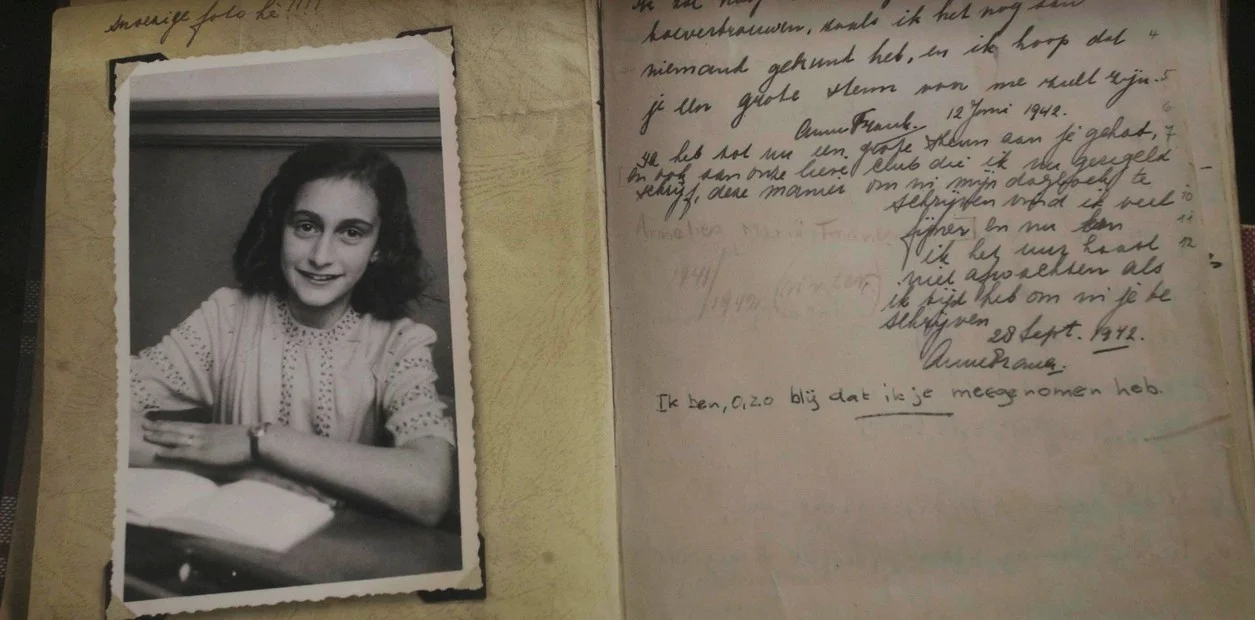 Snoezige foto hè !!!!
Ik zal hoop
toevertrouwen, zoals ik het nog aan
niemand gekund heb, en ik hoop dat 4
je een grote steun voor me zult zijn. 5
Anne Frank. 12 Juni 1942. 6
Ik heb tot nu een grote steun aan je gehad, 7
en ook aan onze lieve club die ik nu geregeld
schrijf, deze manier om in mijn dagboek te
schrijven vind ik veel 10
fijner en nu kan 11
ik het uur haast 12
niet afwachten als
ik tijd heb om in je te
schrijven
28 Sept. 1942.
Anne Frank.
Ik ben, o, zo blij dat ik je meegenomen heb.
1941/
/1942